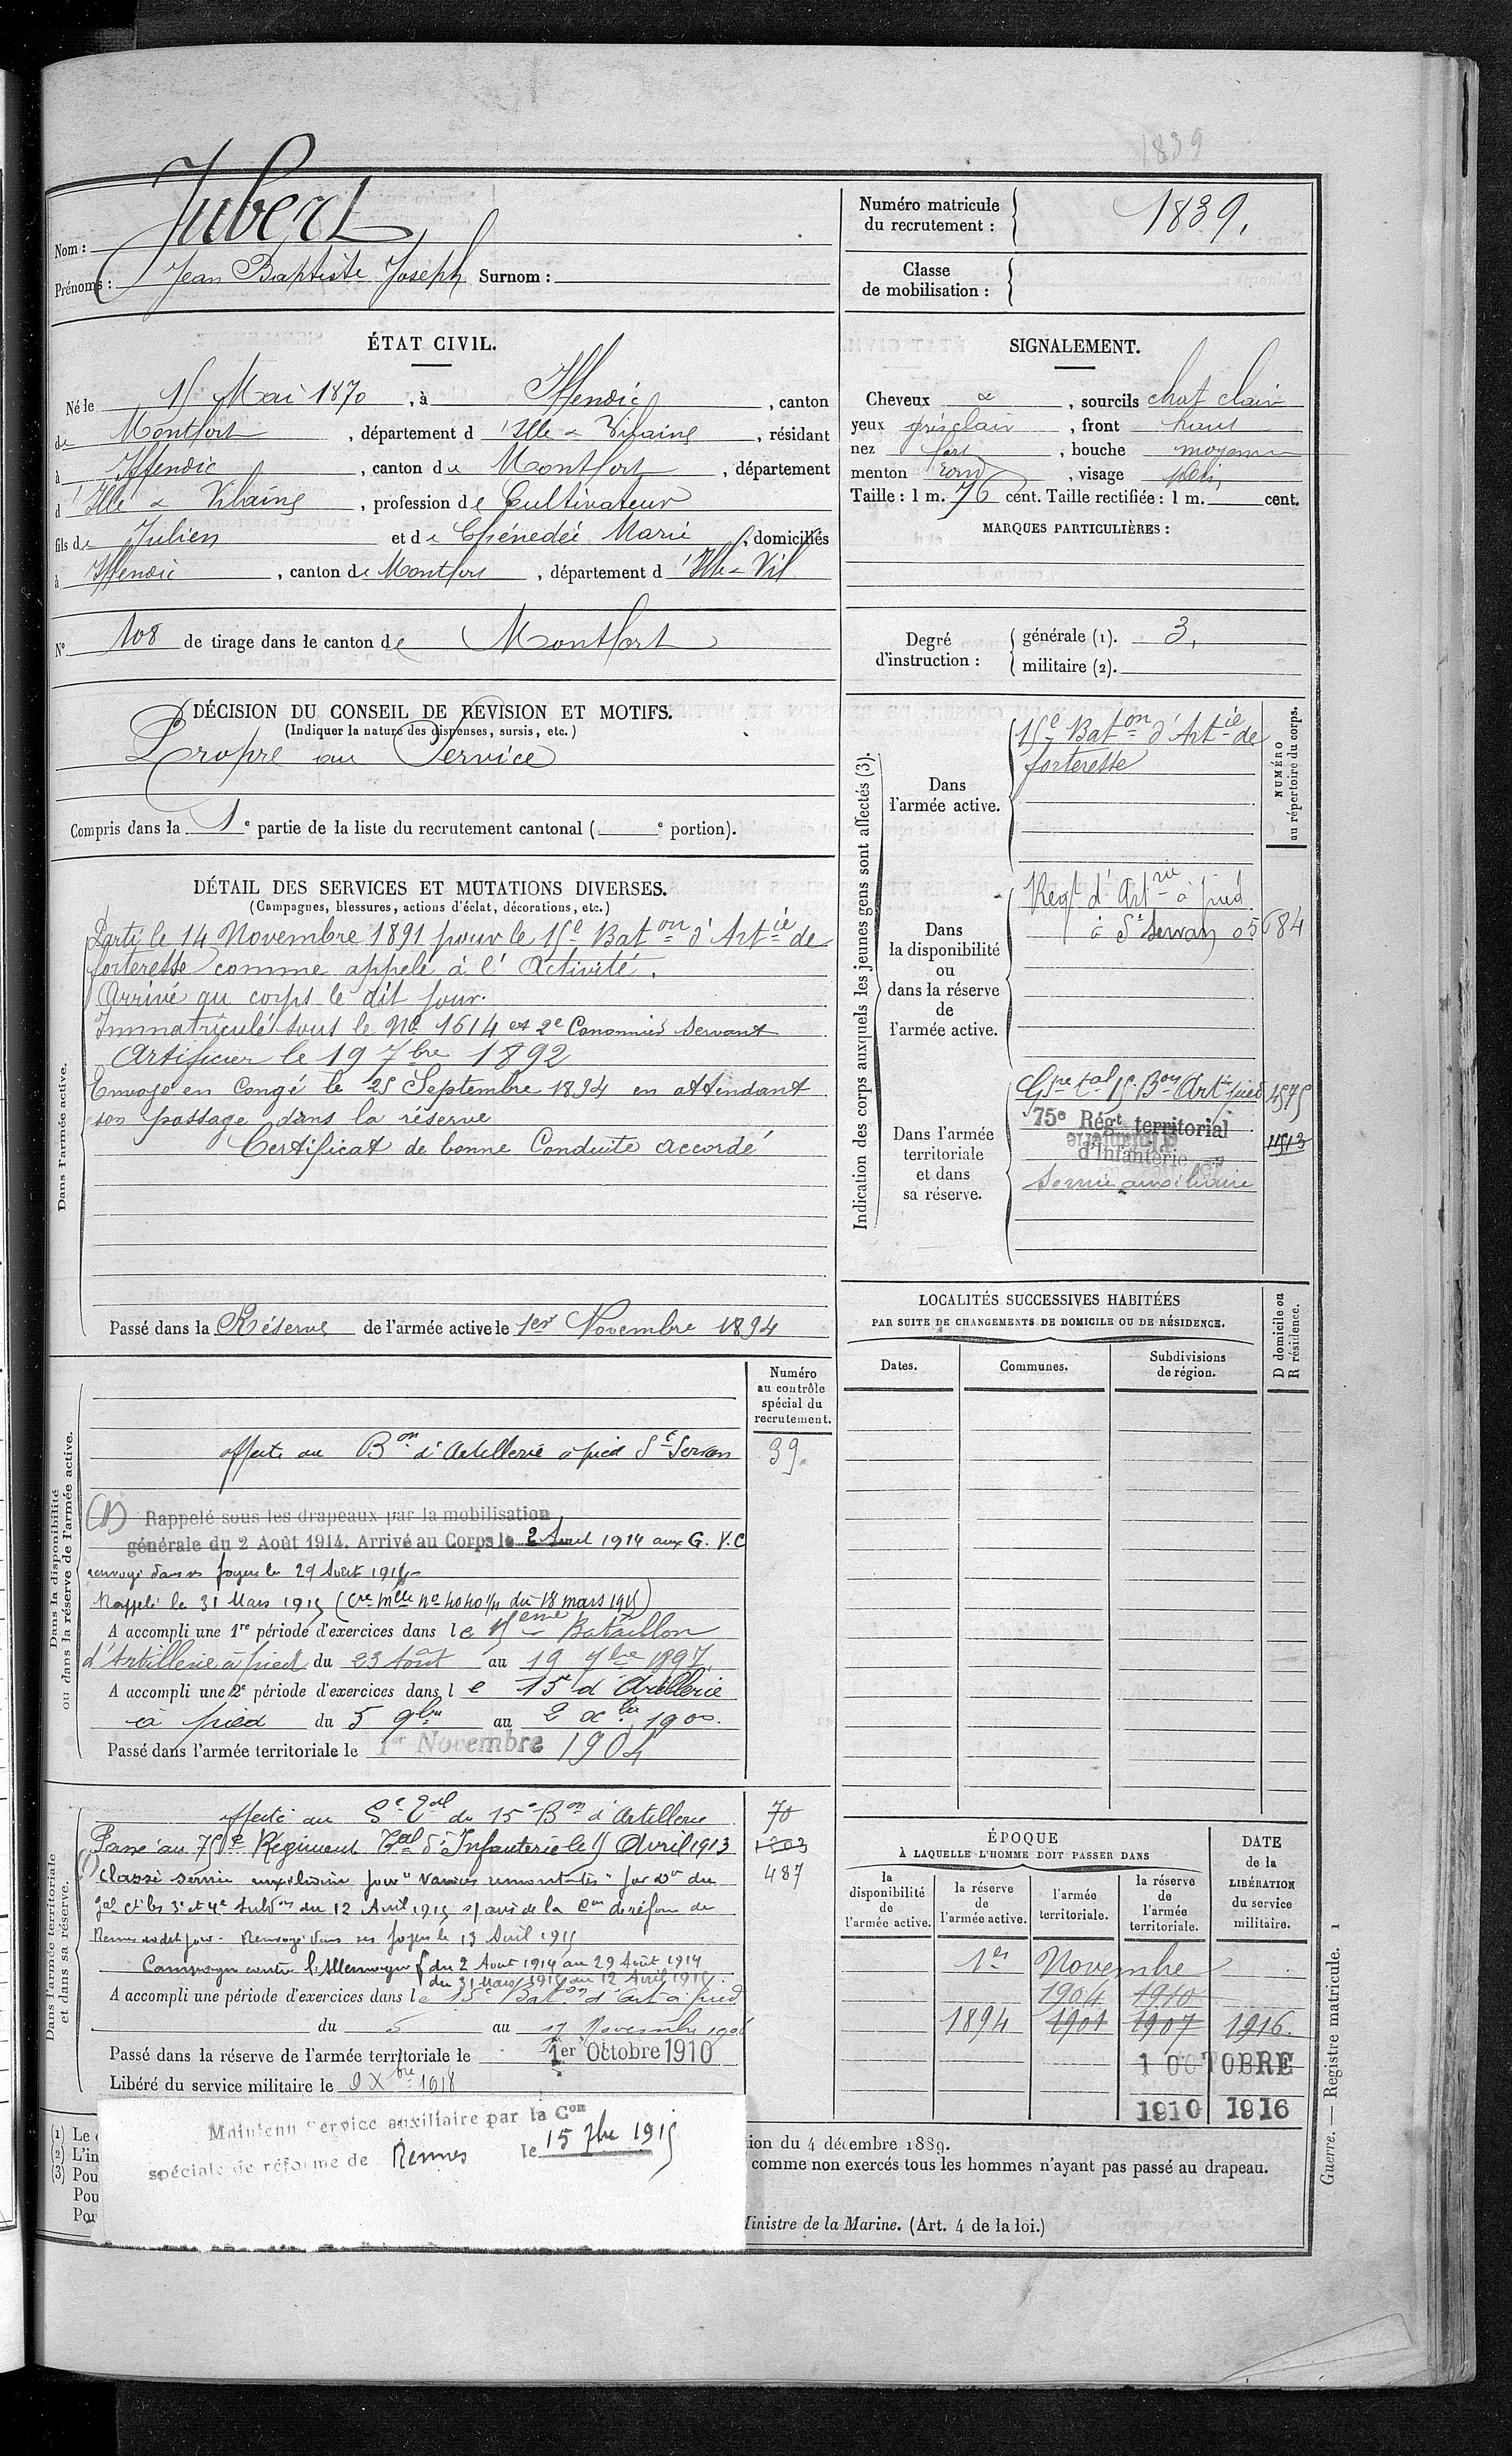 1839
Nom : Jubert
Prénoms : Jean Baptiste Joseph Surnom :
Numéro matricule du recrutement : 1839.
Classe de mobilisation :
ÉTAT CIVIL.
Né le 15 Mai 1870, à Iffendic, canton
de Montfort, département d'Ille & Vilaine, résidant
à Iffendic, canton de Montfort, département
d'Ille & Vilaine, profession de Cultivateur
fils de Julien et de Chénedée Marie, domiciliés
à Iffendic, canton de Montfort, département d'Ille & Vil
N° 108 de tirage dans le canton de Montfort
SIGNALEMENT.
Cheveux &, sourcils chat clair
yeux gris clair, front haut
nez fort, bouche moyenne
menton rond, visage plein
Taille : 1 m. 76 cent. Taille rectifiée : 1 m. cent.
MARQUES PARTICULIÈRES :
Degré d'instruction : générale (1). 3,
militaire (2).
DÉCISION DU CONSEIL DE REVISION ET MOTIFS.
(Indiquer la nature des dispenses, sursis, etc.)
Propre au Service
Compris dans la 1e partie de la liste du recrutement cantonal ( e portion).
DÉTAIL DES SERVICES ET MUTATIONS DIVERSES.
(Campagnes, blessures, actions d'éclat, décorations, etc.)
Dans l'armée active.
Parti le 14 Novembre 1891 pour le 15e Baton d'Artie de
forteresse comme appelé à l'Activité.
Arrivé au corps le dit jour.
Immatriculé sous le No 1614 et 2e Canonnier Servant
Artificier le 19 7bre 1892
Envoyé en Congé le 25 Septembre 1894 en attendant
son passage dans la réserve
Certificat de bonne Conduite accordé
Passé dans la Réserve de l'armée active le 1er Novembre 1894
Indication des corps auxquels les jeunes gens sont affectés (3).
NUMÉRO au répertoire du corps.
Dans l'armée active.
15e Baton d'Artie de
forteresse
Dans la disponibilité ou dans la réserve de l'armée active.
Regt d'Artrie à pied
à St Servan 05684
Dans l'armée territoriale et dans sa réserve.
Gpe tal 15e Bon Artie à pied 4575
75e Régt territorial
d'Infanterie 1513
Service auxiliaire
LOCALITÉS SUCCESSIVES HABITÉES
PAR SUITE DE CHANGEMENTS DE DOMICILE OU DE RÉSIDENCE.
Dates. Communes. Subdivisions de région. D domicile ou R résidence.
Dans la disponibilité ou dans la réserve de l'armée active.
Numéro au contrôle spécial du recrutement.
affecté au Bon d'Artillerie à pied St Servan 39.
(1) Rappelé sous les drapeaux par la mobilisation
générale du 2 Août 1914. Arrivé au Corps le 2 Août 1914 aux G.V.C
renvoyé dans ses foyers le 29 Août 1914
Rappelé le 31 Mars 1915 (Cre Mlle No 4040 1/11 du 18 mars 1915)
A accompli une 1re période d'exercices dans le 15ème Bataillon
d'Artillerie à pied du 23 Août au 19 7bre 1897
A accompli une 2e période d'exercices dans le 15e d'Artillerie
à pied du 5 9bre au 2 Xbre 1900.
Passé dans l'armée territoriale le 1er Novembre 1904
Dans l'armée territoriale et dans sa réserve.
affecté au Ge Tal du 15e Bon d'Artillerie 70
Passé au 75e Régiment Tal d'Infanterie le 15 Avril 1913 1203
(1) Classé service auxiliaire pour "Varices remontantes" par don du 487
Gal Ct les 3e et 4e Subdons du 12 Avril 1915 s/ avis de la Con de réforme de
Rennes du dit jour. Renvoyé dans ses foyers le 13 Avril 1915
Campagne contre l'Allemagne du 2 Août 1914 au 29 Août 1914
du 31 Mars 1915 au 12 Avril 1915.
A accompli une période d'exercices dans le 15e Baton d'Art à pied
du 5 au 17 Novembre 1906
Passé dans la réserve de l'armée territoriale le 1er Octobre 1910
Libéré du service militaire le 9 Xbre 1918
ÉPOQUE
À LAQUELLE L'HOMME DOIT PASSER DANS
la disponibilité de l'armée active. la réserve de l'armée active. l'armée territoriale. la réserve de l'armée territoriale.
DATE de la LIBÉRATION du service militaire.
1er Novembre
1904 1910
1894 1901 1907 1916.
1 OCTOBRE
1910 1916
Maintenu Service auxiliaire par la Con
spéciale de réforme de Rennes le 15 7bre 1915
(1) Le
(2) L'in
(3) Pou
Pou
Pou
tion du 4 décembre 1889.
comme non exercés tous les hommes n'ayant pas passé au drapeau.
Ministre de la Marine. (Art. 4 de la loi.)
Guerre. — Registre matricule. 1